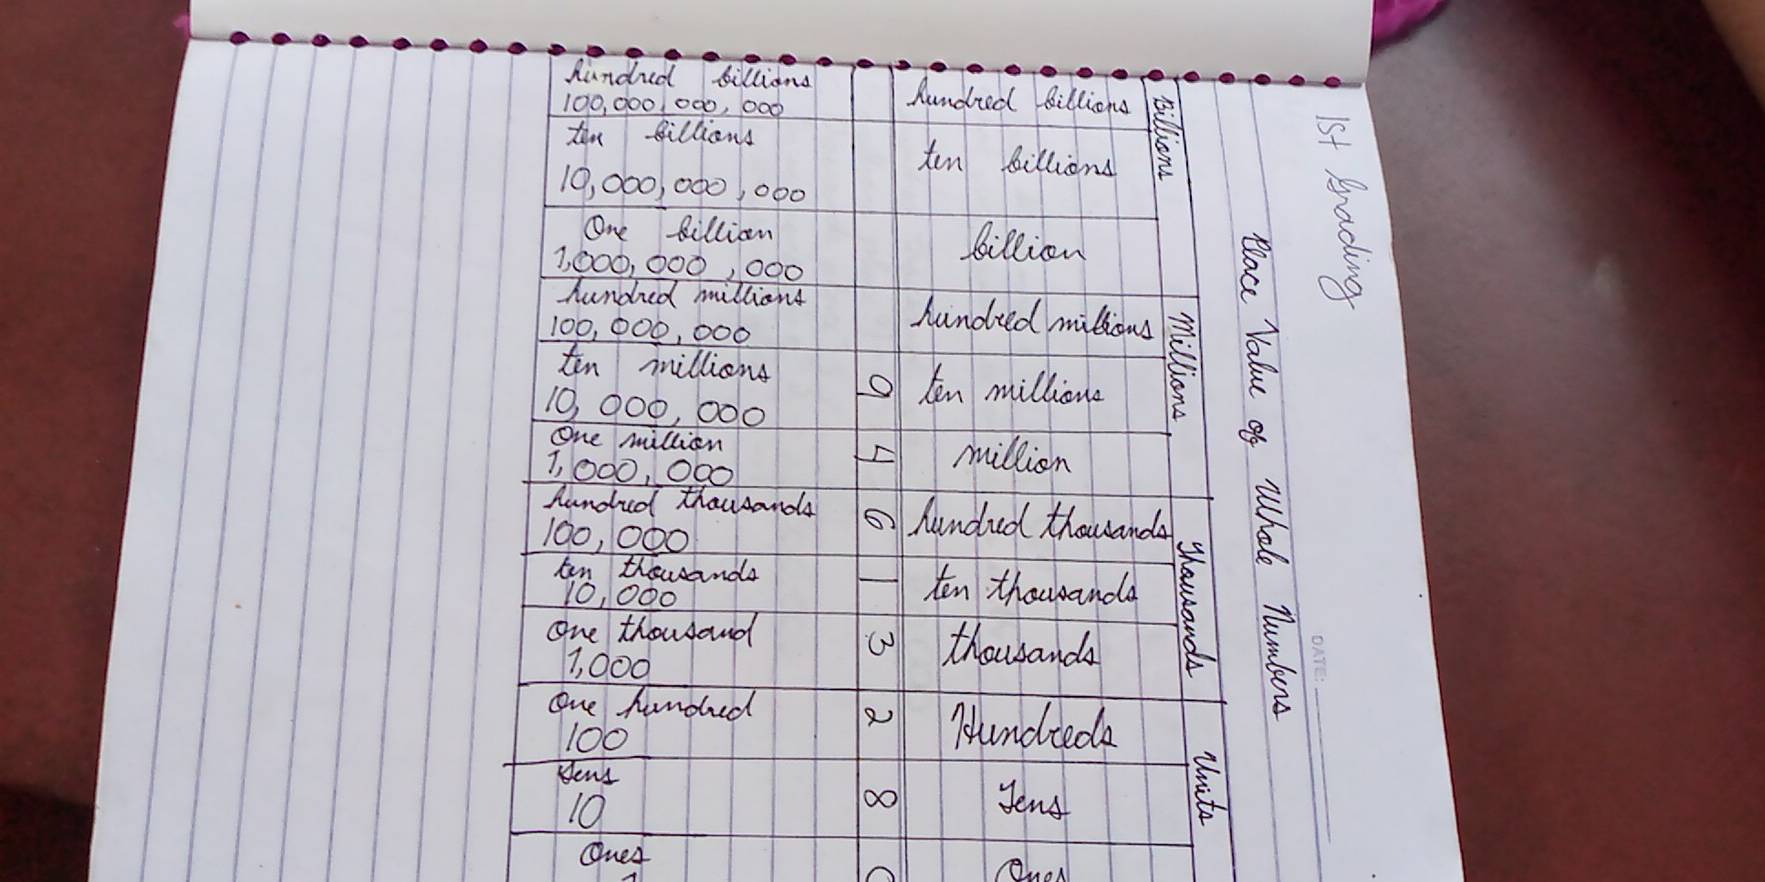 1st Grading
DATE:
Place Value of Whole Numbers
Billions
Millions
Thousands
Units
hundred billions
100,000,000,000
hundred billions
ten billions
10,000,000,000
ten billions
One billion
1,000,000,000
billion
hundred millions
100,000,000
hundred millions
ten millions
10,000,000
9
ten millions
One million
1,000,000
4
million
hundred thousands
100,000
6
hundred thousands
ten thousands
10,000
1
ten thousands
One thousand
1,000
3
thousands
One hundred
100
2
Hundreds
Tens
10
8
Tens
Ones
Ones